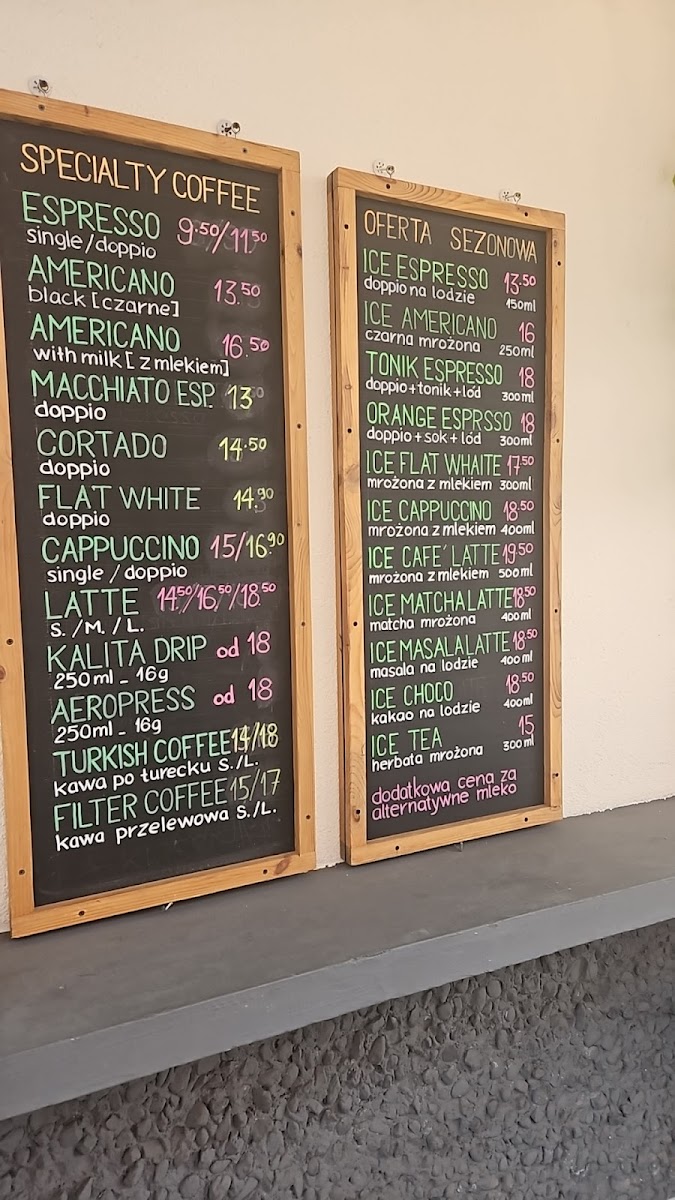 SPECIALTY COFFEE
ESPRESSO 9.50/11.50
single/doppio
AMERICANO 13.50
black [czarne]
AMERICANO 16.50
with milk [z mlekiem]
MACCHIATO ESP. 13
doppio
CORTADO 14.50
doppio
FLAT WHITE 14.90
doppio
CAPPUCCINO 15/16.90
single / doppio
LATTE 14.50/16.50/18.50
S./M./L.
KALITA DRIP od 18
250ml - 16g
AEROPRESS od 18
250ml - 16g
TURKISH COFFEE 14/18
kawa po turecku S./L.
FILTER COFFEE 15/17
kawa przelewowa S./L.
OFERTA SEZONOWA
ICE ESPRESSO 13.50
doppio na lodzie 150ml
ICE AMERICANO 16
czarna mrożona 250ml
TONIK ESPRESSO 18
doppio+tonik+lód 300ml
ORANGE ESPRSSO 18
doppio+sok+lód 300ml
ICE FLAT WHAITE 17.50
mrożona z mlekiem 300ml
ICE CAPPUCCINO 18.50
mrożona z mlekiem 400ml
ICE CAFE' LATTE 19.50
mrożona z mlekiem 500ml
ICE MATCHA LATTE 18.50
matcha mrożona 400ml
ICE MASALA LATTE 18.50
masala na lodzie 400ml
ICE CHOCO 18.50
kakao na lodzie 400ml
ICE TEA 15
herbata mrożona 300ml
dodatkowa cena za
alternatywne mleko